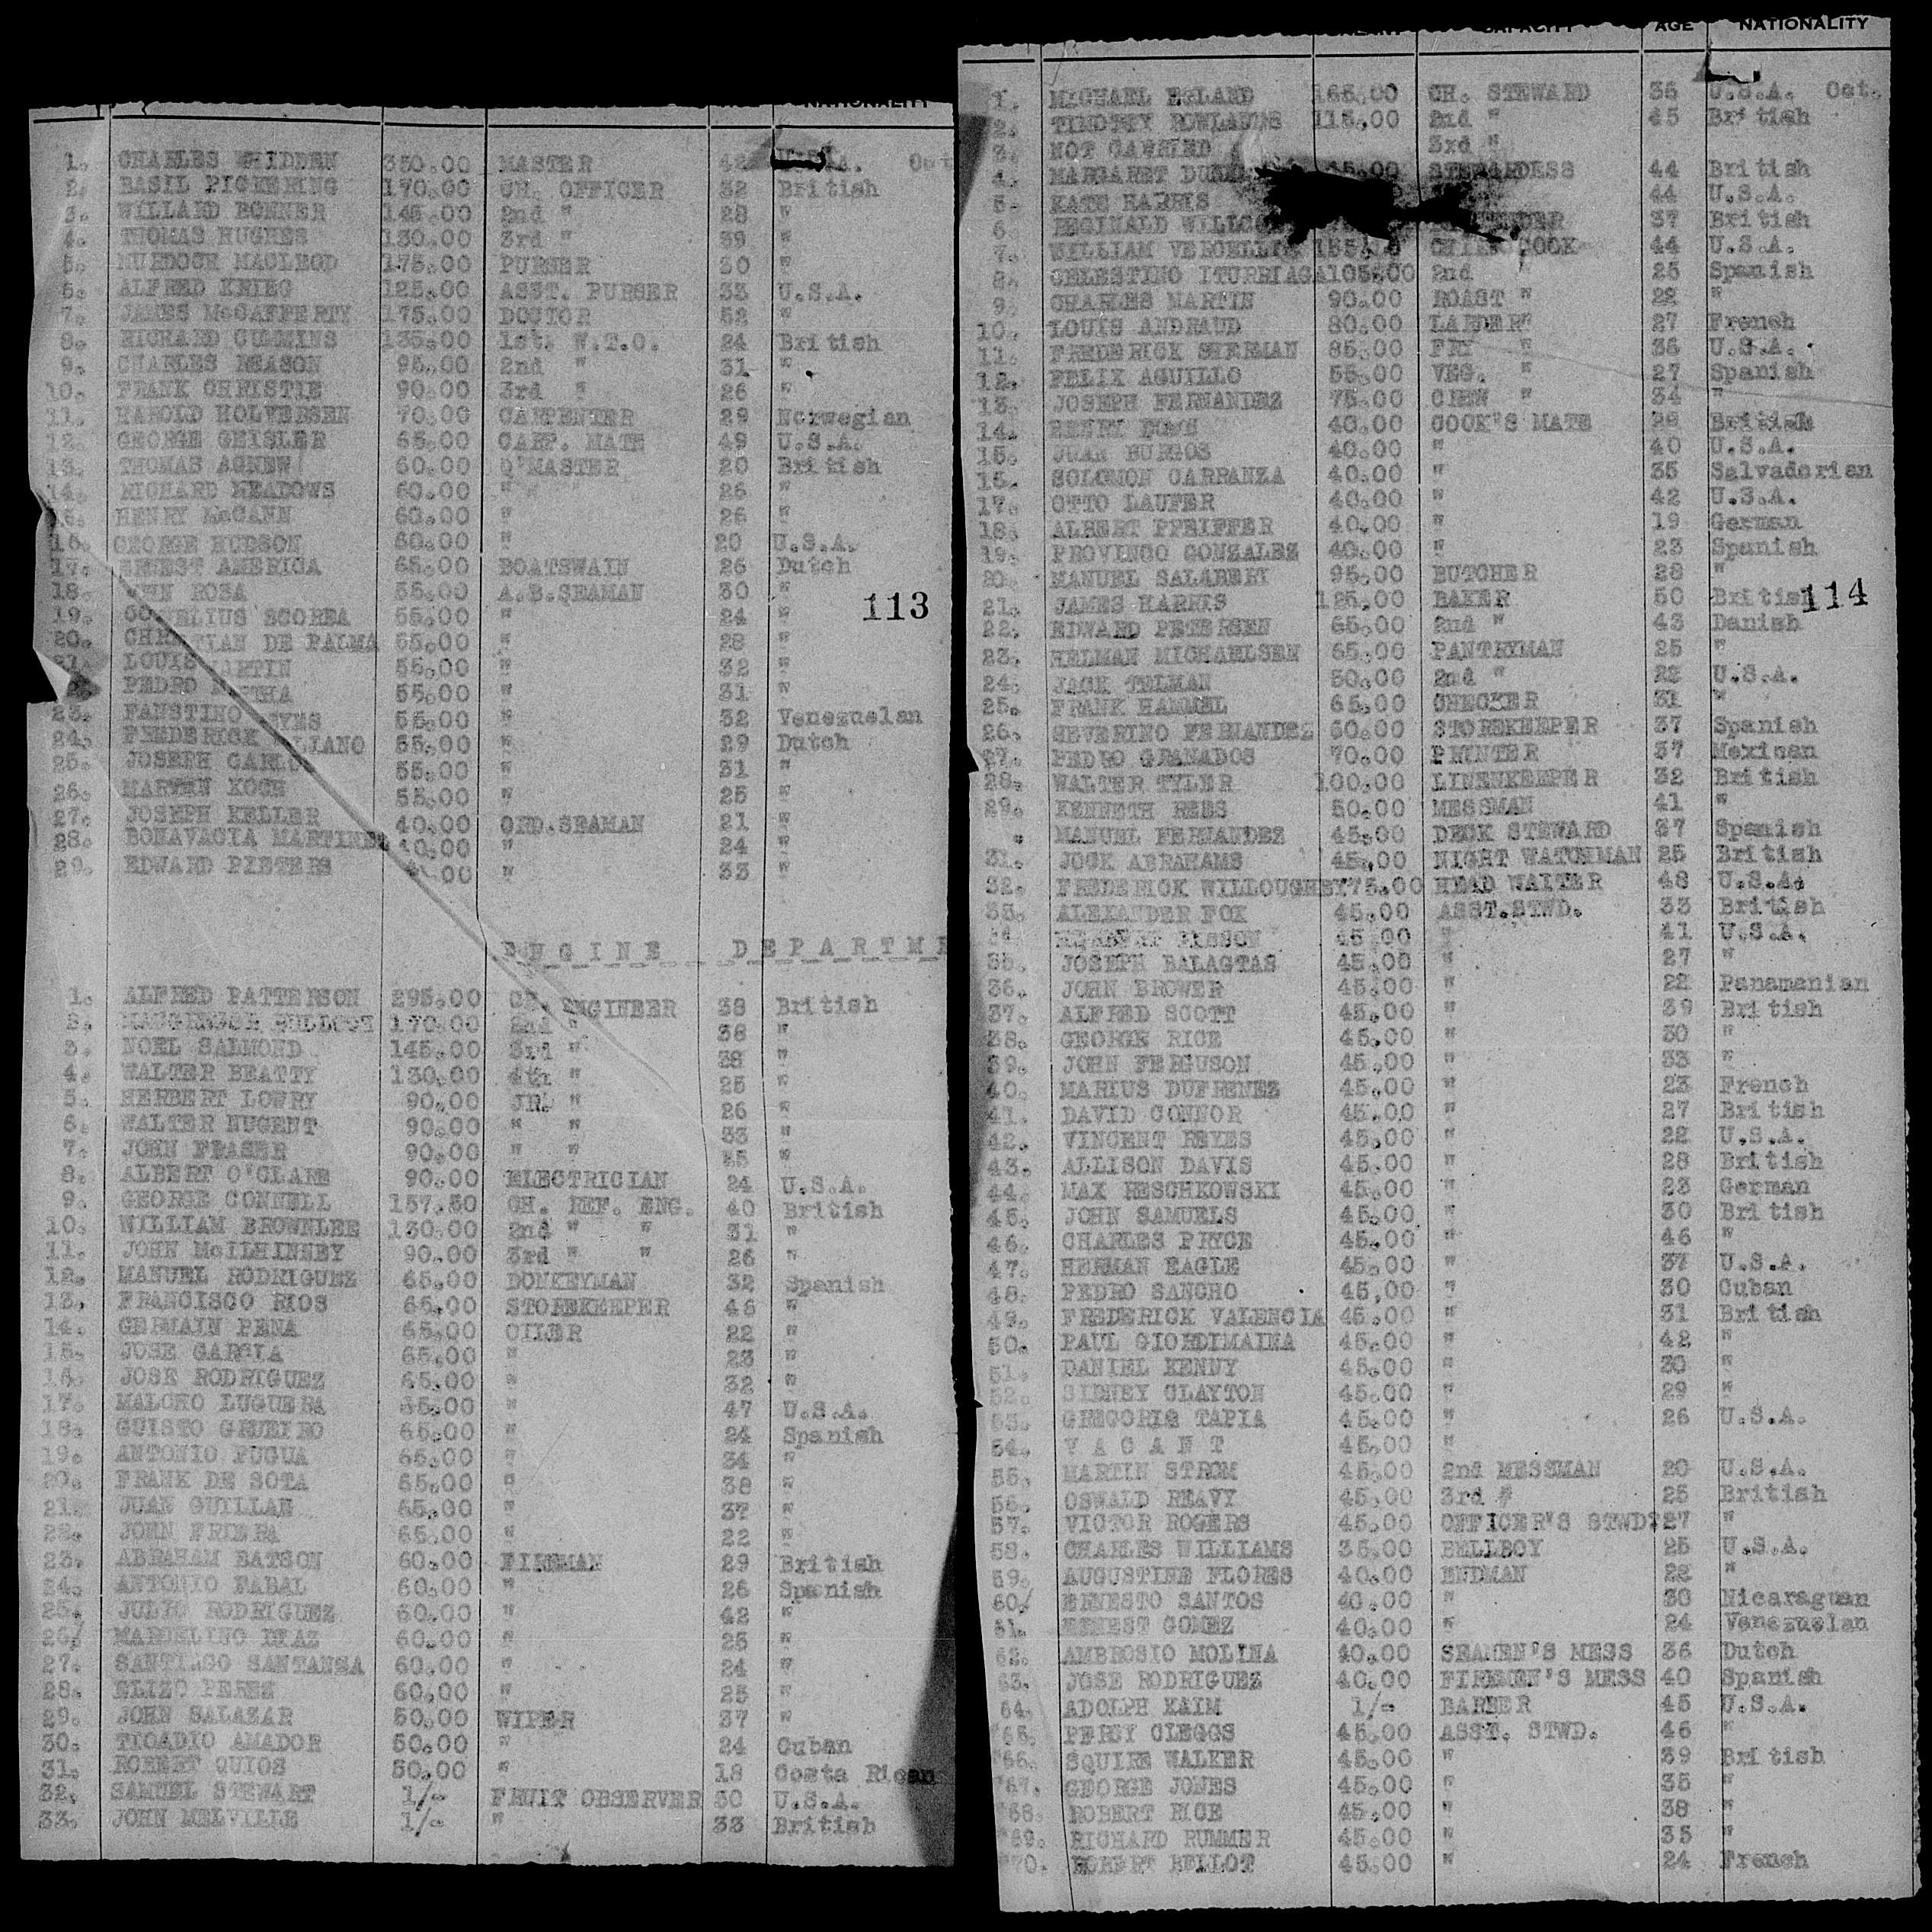 NATIONALITY
1. CHARLES WHIDDEN 350.00 MASTER 42 U.S.A. Oct
2. BASIL PICKERING 170.00 CH. OFFICER 32 British
3. WILLARD BONNER 145.00 2nd " 28 "
4. THOMAS HUGHES 130.00 3rd " 39 "
5. MURDOCH MACLEOD 175.00 PURSER 30 "
6. ALFRED KRIEG 125.00 ASST. PURSER 33 U.S.A.
7. JAMES McCAFFERTY 175.00 DOCTOR 52 "
8. RICHARD CUMMINS 135.00 1st. W.T.O. 24 British
9. CHARLES REASON 95.00 2nd " 31 "
10. FRANK CHRISTIE 90.00 3rd " 26 "
11. HAROLD HOLVERSEN 70.00 CARPENTER 29 Norwegian
12. GEORGE GEISLER 65.00 CARP. MATE 49 U.S.A.
13. THOMAS AGNEW 60.00 Q'MASTER 20 British
14. RICHARD MEADOWS 60.00 " " 26 "
15. HENRY McCANN 60.00 " 26 "
16. GEORGE HUDSON 60.00 " 20 U.S.A.
17. ERNEST AMERICA 65.00 BOATSWAIN 26 Dutch
18. JOHN ROSA 55.00 A.B.SEAMAN 30 "
113
19. CORNELIUS SCOREA 55.00 " 24 "
20. CHRISTIAN DE PALMA 55.00 " 28 "
21. LOUIS MARTIN 55.00 " 32 "
22. PEDRO 55.00 " 31 "
23. FAUSTINO 55.00 " 32 Venezuelan
24. FREDERICK 55.00 " 29 Dutch
25. JOSEPH CARLO 55.00 " 31 "
26. MARTEN KOCH 55.00 " 25 "
27. JOSEPH KELLER 40.00 ORD.SEAMAN 21 "
28. BONAVACIA MARTINES 40.00 " 24 "
29. EDWARD PIETERS 00 " 33 "
ENGINE DEPARTME
1. ALFRED PATTERSON 295.00 CH. ENGINEER 38 British
2. 170.00 2nd " 38 "
3. NOEL SALMOND 145.00 3rd " 38 "
4. WALTER BEATTY 130.00 4th " 25 "
5. HERBERT LOWRY 90.00 JR. " 26 "
6. WALTER NUGENT 90.00 " " 33 "
7. JOHN FRASER 90.00 " " 25 "
8. ALBERT O'CLARE 90.00 ELECTRICIAN 24 U.S.A.
9. GEORGE CONNELL 157.50 CH. REF. ENG. 40 British
10. WILLIAM BROWNLEE 130.00 2nd " " 31 "
11. JOHN McILHINNEY 90.00 3rd " " 26 "
12. MANUEL RODRIGUEZ 65.00 DONKEYMAN 32 Spanish
13. FRANCISCO RIOS 65.00 STOREKEEPER 46 "
14. GERMAIN PENA 65.00 OILER 22 "
15. JOSE GARCIA 65.00 " 23 "
16. JOSE RODRIGUEZ 65.00 " 32 "
17. MALCHO LUGUERA 65.00 " 47 U.S.A.
18. GUISTO GRUEIRO 65.00 " 24 Spanish
19. ANTONIO PUGUA 65.00 " 34 "
20. FRANK DE SOTA 65.00 " 38 "
21. JUAN GUILLAN 65.00 " 37 "
22. JOHN FRIERA 65.00 " 22 "
23. ABRAHAM BATSON 60.00 FIREMAN 29 British
24. ANTONIO FABAL 60.00 " 26 Spanish
25. JULIO RODRIGUEZ 60.00 " 42 "
26. MARCELINO DIAZ 60.00 " 25 "
27. SANTIAGO SANTANSA 60.00 " 24 "
28. ELIZO PERES 60.00 " 25 "
29. JOHN SALAZAR 50.00 WIPER 37 "
30. TIOADIO AMADOR 50.00 " 24 Cuban
31. ROBERT QUIOS 50.00 " 18 Costa Rican
32. SAMUEL STEWART 1/- FRUIT OBSERVER 50 U.S.A.
33. JOHN MELVILLE 1/- " 33 British
CAPACITY AGE NATIONALITY
1. MICHAEL ERLAND 165.00 CH. STEWARD 36 U.S.A. Oct.
2. TIMOTHY ROWLANDS 115.00 2nd " 45 British
3. NOT CARRIED 3rd "
4. MARGARET 45.00 STEWARDESS 44 British
5. KATE HARRIS 44 U.S.A.
6. REGINALD 37 British
7. WILLIAM VERCELLI CHIEF COOK 44 U.S.A.
8. CELESTINO ITURRIAGA 105.00 2nd " 25 Spanish
9. CHARLES MARTIN 90.00 ROAST " 22 "
10. LOUIS ANDRAUD 80.00 LARDER" 27 French
11. FREDERICK SHERMAN 85.00 FRY " 36 U.S.A.
12. FELIX AGUILLO 55.00 VEG. " 27 Spanish
13. JOSEPH FERNANDEZ 75.00 CREW " 34 "
14. HENRY 40.00 COOK'S MATE 28 British
15. JUAN BURGOS 40.00 " 40 U.S.A.
16. SOLOMON CARRANZA 40.00 " 35 Salvadorian
17. OTTO LAUFER 40.00 " 42 U.S.A.
18. ALBERT PFEIFFER 40.00 " 19 German
19. PROVINCO GONZALEZ 40.00 " 23 Spanish
20. MANUEL SALABERY 95.00 BUTCHER 28 "
21. JAMES HARRIS 125.00 BAKER 50 British
114
22. EDWARD PETERSEN 65.00 2nd " 43 Danish
23. HELMAN MICHAELSEN 65.00 PANTRYMAN 25 "
24. JACK TELMAN 50.00 2nd " 22 U.S.A.
25. FRANK HAMMEL 65.00 CHECKER 31 "
26. SEVERINO FERNANDEZ 60.00 STOREKEEPER 37 Spanish
27. PEDRO GRANADOS 70.00 PRINTER 37 Mexican
28. WALTER TYLER 100.00 LINENKEEPER 32 British
29. KENNETH REES 50.00 MESSMAN 41 "
. MANUEL FERNANDEZ 45.00 DECK STEWARD 37 Spanish
31. JOCK ABRAHAMS 45.00 NIGHT WATCHMAN 25 British
32. FREDERICK WILLOUGHBY 75.00 HEAD WAITER 48 U.S.A.
33. ALEXANDER FOX 45.00 ASST.STWD. 33 British
34. 45.00 " 41 U.S.A.
35. JOSEPH BALAGTAS 45.00 " 27 "
36. JOHN BROWER 45.00 " 22 Panamanian
37. ALFRED SCOTT 45.00 " 39 British
38. GEORGE RICE 45.00 " 30 "
39. JOHN FERGUSON 45.00 " 33 "
40. MARIUS DUFRENEZ 45.00 " 23 French
41. DAVID CONNOR 45.00 " 27 British
42. VINCENT REYES 45.00 " 22 U.S.A.
43. ALLISON DAVIS 45.00 " 28 British
44. MAX RESCHKOWSKI 45.00 " 23 German
45. JOHN SAMUELS 45.00 " 30 British
46. CHARLES PRYCE 45.00 " 46 "
47. HERMAN EAGLE 45.00 " 37 U.S.A.
48. PEDRO SANCHO 45.00 " 30 Cuban
49. FREDERICK VALENCIA 45.00 " 31 British
50. PAUL GIORDIMAINA 45.00 " 42 "
51. DANIEL KENNY 45.00 " 30 "
52. SIDNEY CLAYTON 45.00 " 29 "
53. GREGORIO TAPIA 45.00 " 26 U.S.A.
54. V A C A N T 45.00 "
55. MARTIN STROM 45.00 2nd MESSMAN 20 U.S.A.
56. OSWALD REAVY 45.00 3rd " 25 British
57. VICTOR ROGERS 45.00 OFFICER'S STWD. 27 "
58. CHARLES WILLIAMS 35.00 BELLBOY 25 U.S.A.
59. AUGUSTINE FLORES 40.00 ENDMAN 22 "
60. ERNESTO SANTOS 40.00 " 30 Nicaraguan
61. ERNEST GOMEZ 40.00 " 24 Venezuelan
62. AMBROSIO MOLINA 40.00 SEAMEN'S MESS 36 Dutch
63. JOSE RODRIGUEZ 40.00 FIREMEN'S MESS 40 Spanish
64. ADOLPH KAIM 1/- BARBER 45 U.S.A.
65. PERCY CLEGGS 45.00 ASST. STWD. 46 "
66. SQUIRE WALKER 45.00 " 39 British
67. GEORGE JONES 45.00 " 35 "
68. ROBERT RICE 45.00 " 38 "
69. RICHARD RUMMER 45.00 " 35 "
70. ROBERT BELLOT 45.00 " 24 French